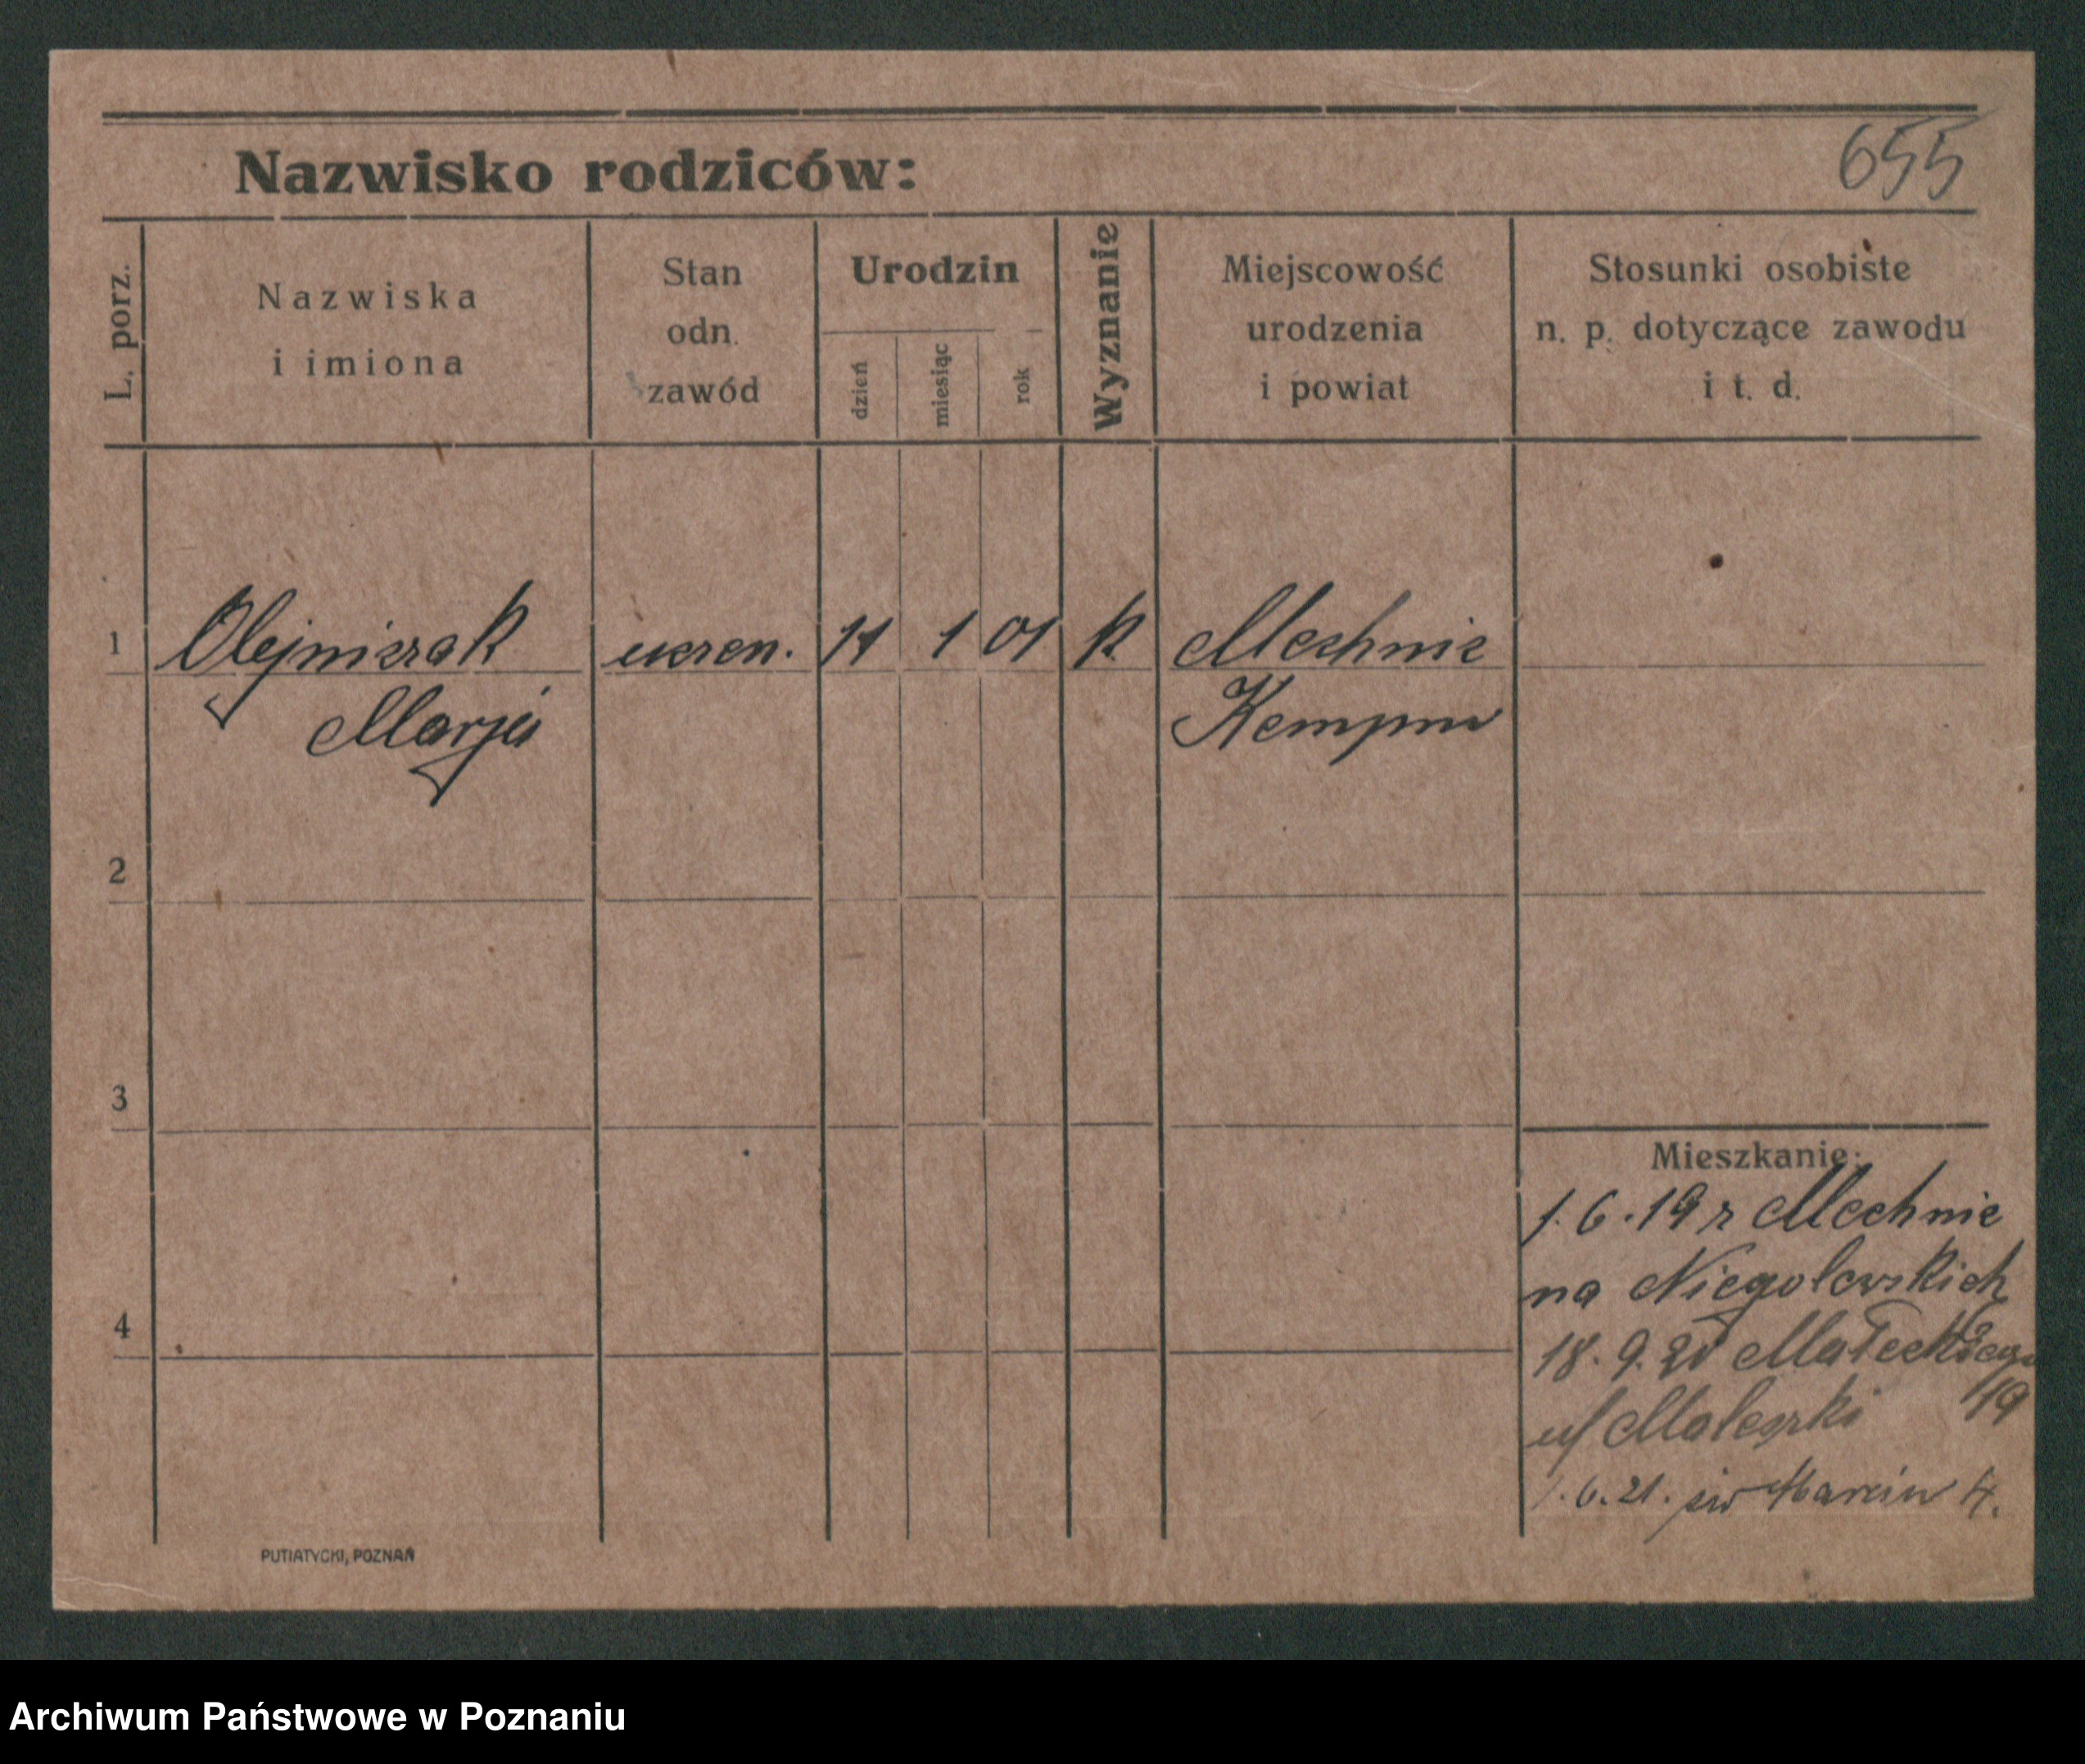 655
Nazwisko rodziców:
L. porz.
Nazwiska
i imiona
Stan
odn.
zawód
Urodzin
dzień
miesiąc
rok
Wyznanie
Miejscowość
urodzenia
i powiat
Stosunki osobiste
n. p. dotyczące zawodu
i t. d.
1 Olejniczak uczen. 1 01 k Mechnic
Marja Kempno
2
3
4
Mieszkanie:
1.6.19 z Mechnic
na Niegolewskich
18.9.20 Małeckiego
19
1.6.21. św Marcin 4.
PUTIATYCKI, POZNAŃ
Archiwum Państwowe w Poznaniu